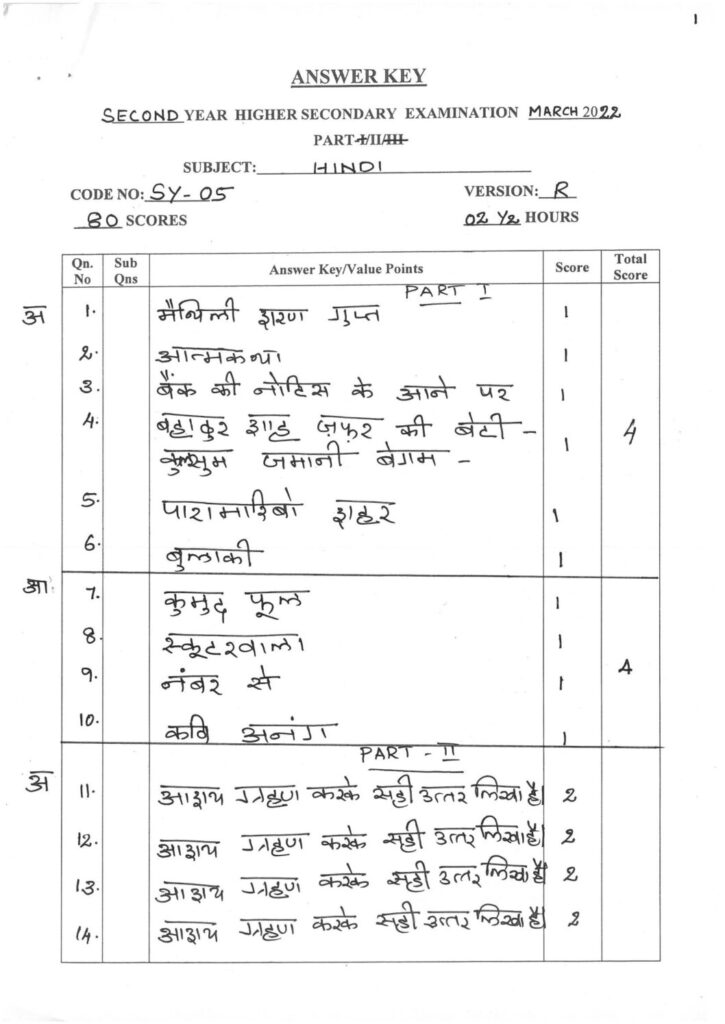 1
ANSWER KEY
SECOND YEAR HIGHER SECONDARY EXAMINATION MARCH 2022
PART-I/II/III
SUBJECT: HINDI
CODE NO: SY-05 VERSION: R
80 SCORES 02 1/2 HOURS
Qn. No Sub Qns Answer Key/Value Points Score Total Score
PART I
अ 1. मैथिली शरण गुप्त 1
2. आत्मकथा 1
3. बैंक की नोटिस के आने पर 1
4. बहादुर शाह ज़फ़र की बेटी - 4
कुलसुम जमानी बेगम - 1
5. पारामारिबो शहर 1
6. बुलाकी 1
आ 7. कुमुद फूल 1
8. स्कूटरवाला 1
9. नंबर से 1 4
10. कवि अनंग 1
PART - II
अ 11. आशय ग्रहण करके सही उत्तर लिखा है। 2
12. आशय ग्रहण करके सही उत्तर लिखा है। 2
13. आशय ग्रहण करके सही उत्तर लिखा है 2
14. आशय ग्रहण करके सही उत्तर लिखा है। 2